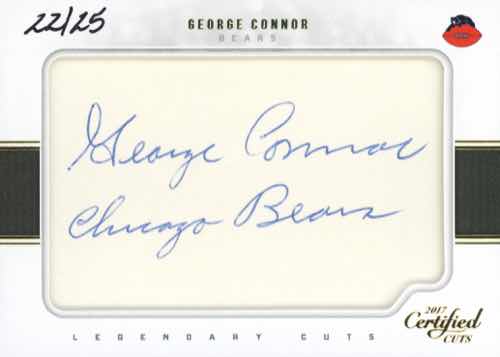 22/25
GEORGE CONNOR
BEARS
George Connor
Chicago Bears
LEGENDARY CUTS
2017
Certified
CUTS